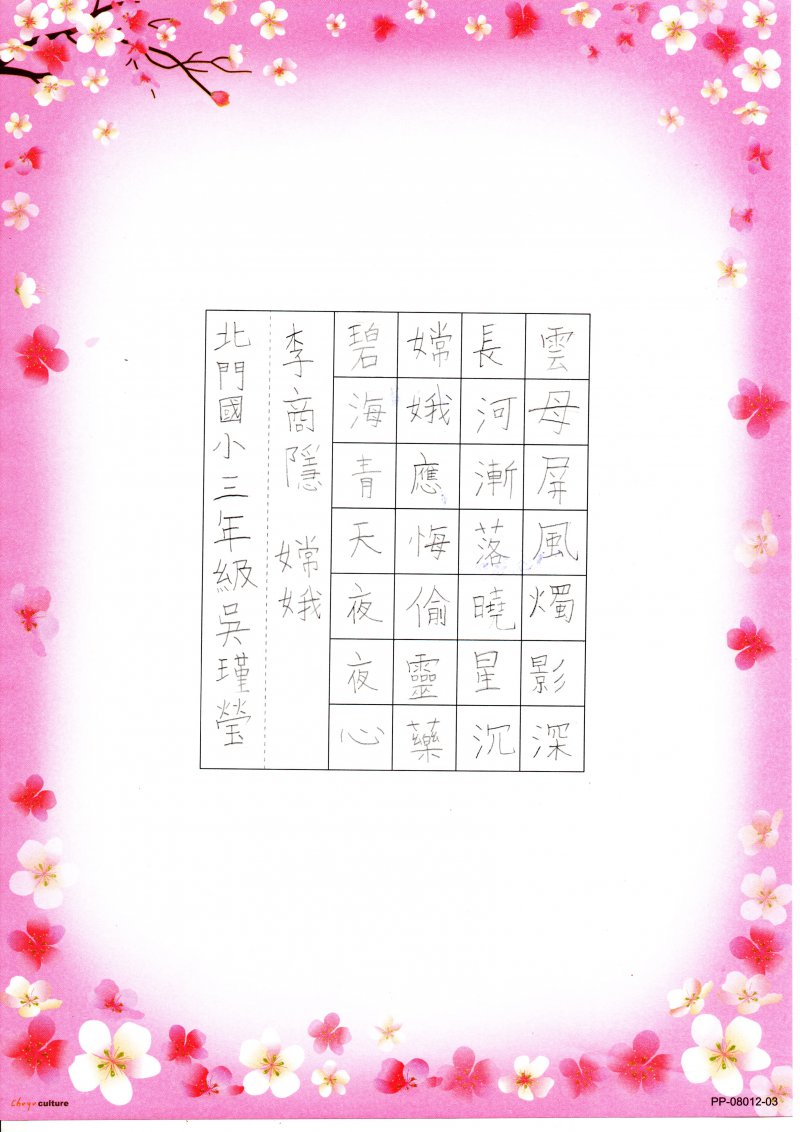 雲母屏風燭影深
長河漸落曉星沉
嫦娥應悔偷靈藥
碧海青天夜夜心
李商隱 嫦娥
北門國小三年級吳瑾瑩
Choyuculture
PP-08012-03